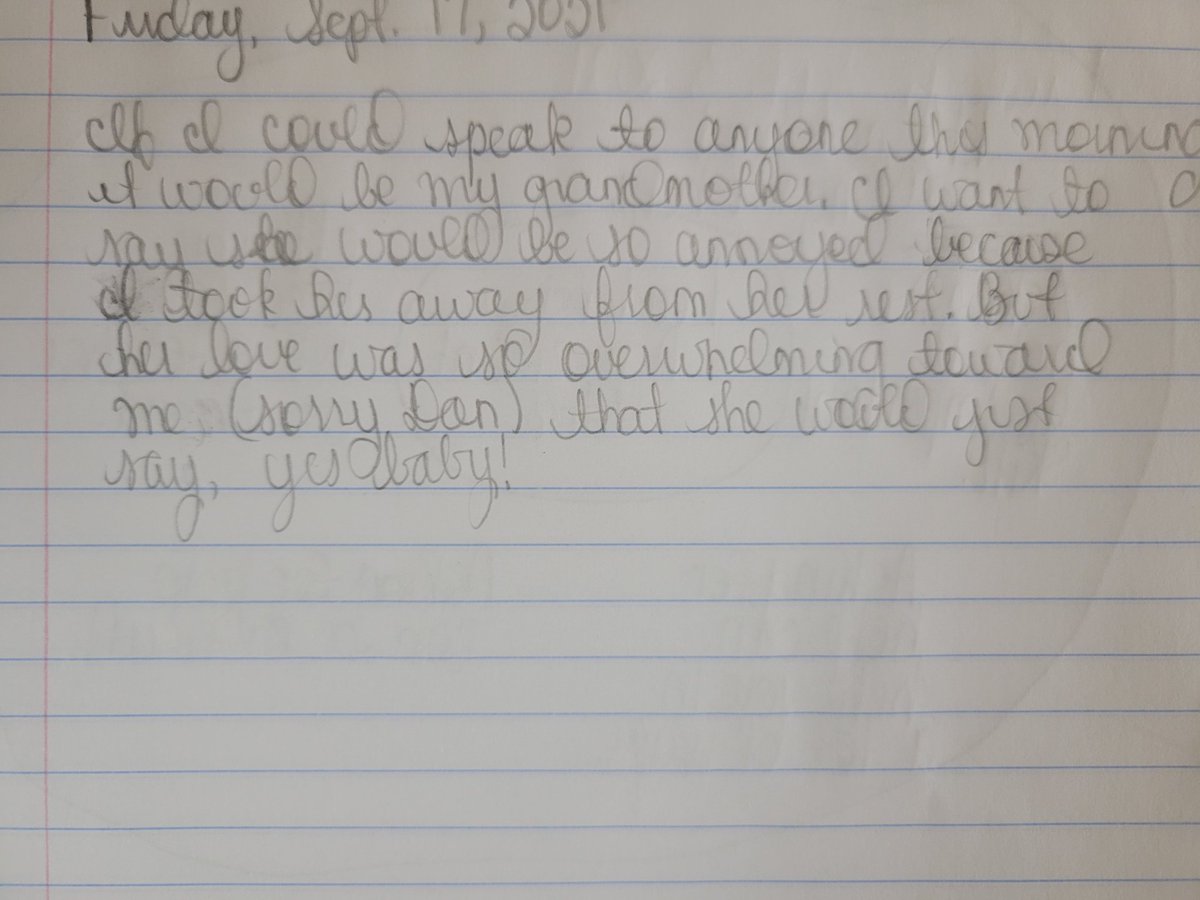 Friday, Sept. 17, 2021
If I could speak to anyone this morning
it would be my grandmother. I want to
say she would be so annoyed because
I took her away from her rest. But
her love was so overwhelming toward
me (sorry Dan) that she would just
say, yes baby!